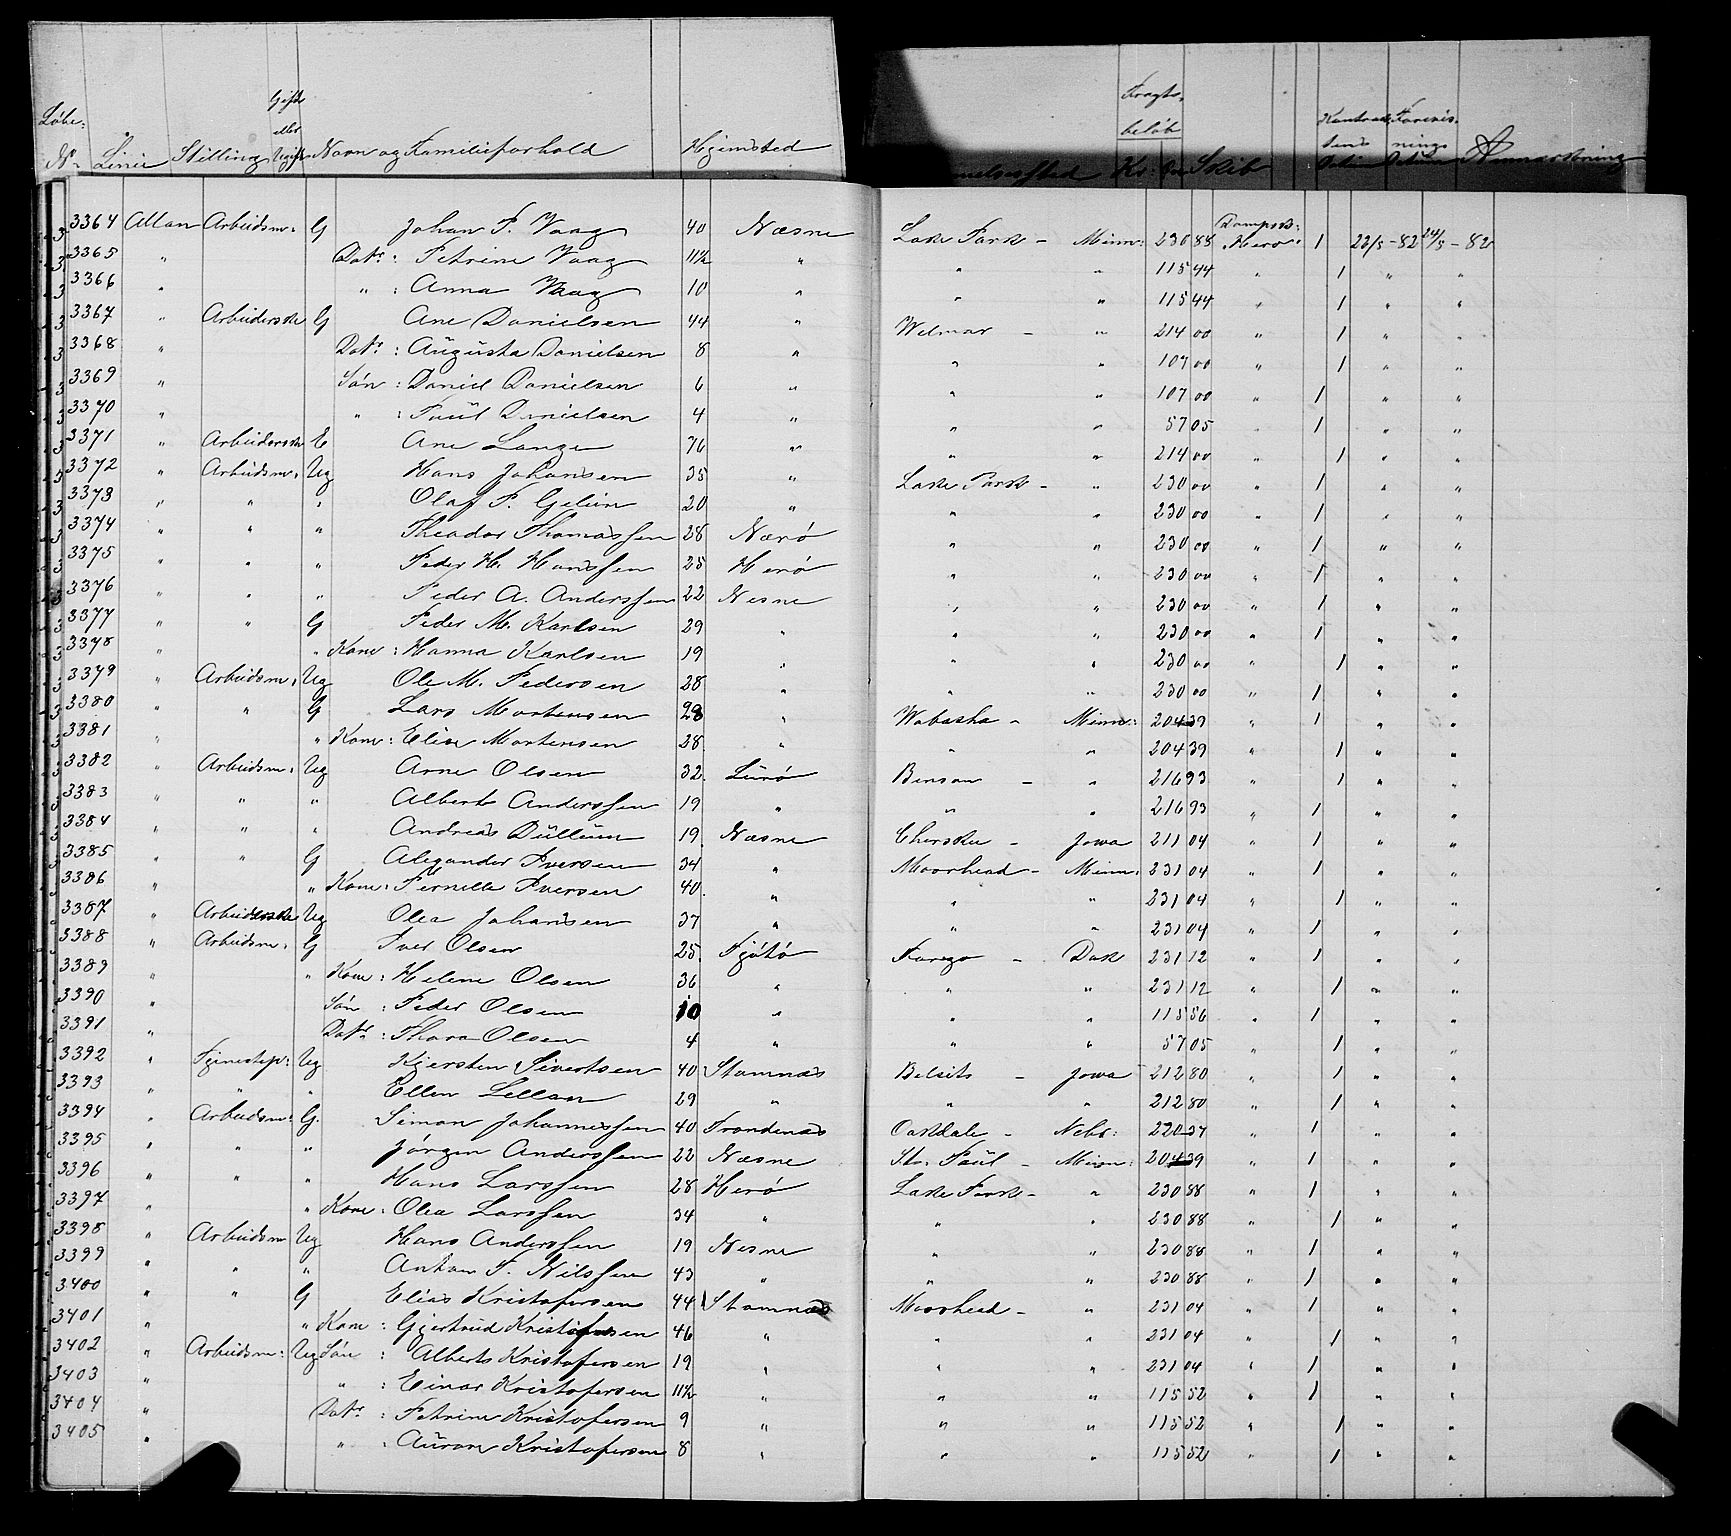 Løbe: Gift Fragt-
eller beløb Kontrac- Forevis-
No Linie Stilling Ugift Navn og Familieforhold Hjemsted melsessted Kr: Øre Skib tens nings Anmærkning
Datum Datum
3364 Allan Arbeidsm: G Johan P. Vaag 40 Næsne Lake Park - Minn: 230 88 Dampsk: Hero 1 23/5 - 82 24/5 - 82
3365 " Datr: Petrine Vaag 11½ " " " 115 44 " 1 " "
3366 " " : Anna Vaag 10 " " " 115 44 " 1 " "
3367 " Arbeiderske G Ane Danielsen 44 " Wilmar - " 214 00 " 1 " "
3368 " Datr: Augusta Danielsen 8 " " " 107 00 " 1 " "
3369 " Søn: Daniel Danielsen 6 " " " 107 00 " 1 " "
3370 " " : Paul Danielsen 4 " " " 57 05 " 1 " "
3371 " Arbeiderske E Ane Lange 76 " " " 214 00 1 " "
3372 " Arbeidsm: Ug Hans Johansen 35 " Lake Park - " 230 00 " 1 " "
3373 " " " Olaf P. 20 " " " 230 00 " 1 " "
3374 " " " Theodor Thomassen 28 Nærø " " 230 00 " 1 " "
3375 " " " Peder H. Hanssen 25 Herø " " 230 00 " 1 " "
3376 " " " Peder A. Anderssen 22 Nesne " " 230 00 " 1 " "
3377 " " G Peder M. Karlsen 29 " " " 230 00 " 1 " "
3378 " " Kone: Hanna Karlsen 19 " " " 230 00 " 1 " "
3379 " Arbeidsm: Ug Ole M. Pedersen 28 " " " 230 00 " 1 " "
3380 " " G Lars Mortensen 28 " Wabasha - Minn: 204 39 " 1 " "
3381 " " Kone: Elise Mortensen 28 " " " 204 39 " 1 " "
3382 " Arbeidsm: Ug Arne Olsen 32. Lurø Benson - " 216 93 " 1 " "
3383 " " " Albert Anderssen 19 " " " 216 93 " 1 " "
3384 " " " Andreas Dullum 19. Næsne Jowa 211 04 " 1 " "
3385 " " G Alexander Iversen 34 " Moorhead - Minn: 231 04 " 1 " "
3386 " " Kone: Pernelle Iversen 40. " " " 231 04 " 1 " "
3387 " Arbeiderske Ug Olea Johansen 37 " " " 231 04 " 1 " "
3388 " Arbeidsm: G Iver Olsen 25. Tjøtø Farego - Dak 231 12 " 1 " "
3389 " " Kone: Helene Olsen 36 " " " 231 12 " 1 " "
3390 " Søn: Peder Olsen 10 " " " 115 56 " 1 " "
3391 " Datr: Thora Olsen 4 " " " 57 05 " 1 " "
3392 " Tjenestep: Ug Kjersten Sivertsen 40 Stamnæs Beloits - Jowa 212 80 " 1 " "
3393 " " " Ellen 29 " " " 212 80 " 1 " "
3394 " Arbeidsm: G. Simon Johannessen 40 Trondenæs Oakdale - Nebr: 220 37 " 1 " "
3395 " " " Jørgen Anderssen 22 Næsne St. Paul - Minn: 204 39 " 1 " "
3396 " " " Hans Larssen 28 Herø Lake Park - " 230 88 " 1 " "
3397 " " Kone: Olea Larssen 34 " " " 230 88 " 1 " "
3398 " Arbeidsm Ug Hans Anderssen 19 Nesne " " 230 88 " 1 " "
3399 " " " Anton P. Nilssen 43 " " " 230 88 " 1 " "
3400 " " G Elias Kristofersen 44 Stamnæs Moorhead - " 231 04 " 1 " "
3401 " " Kone: Gjertrud Kristofersen 46 " " " 231 04 " 1 " "
3402 " Arbeidsm: Ug Søn: Alberts Kristofersen 19 " " " 231 04 " 1 " "
3403 " " : Einar Kristofersen 11½ " " " 115 52 " 1 " "
3404 " Datr: Petrine Kristofersen 9 " " " 115 52 " 1 " "
3405 " " : Kristofersen 8 " " " 115 52 " 1 " "